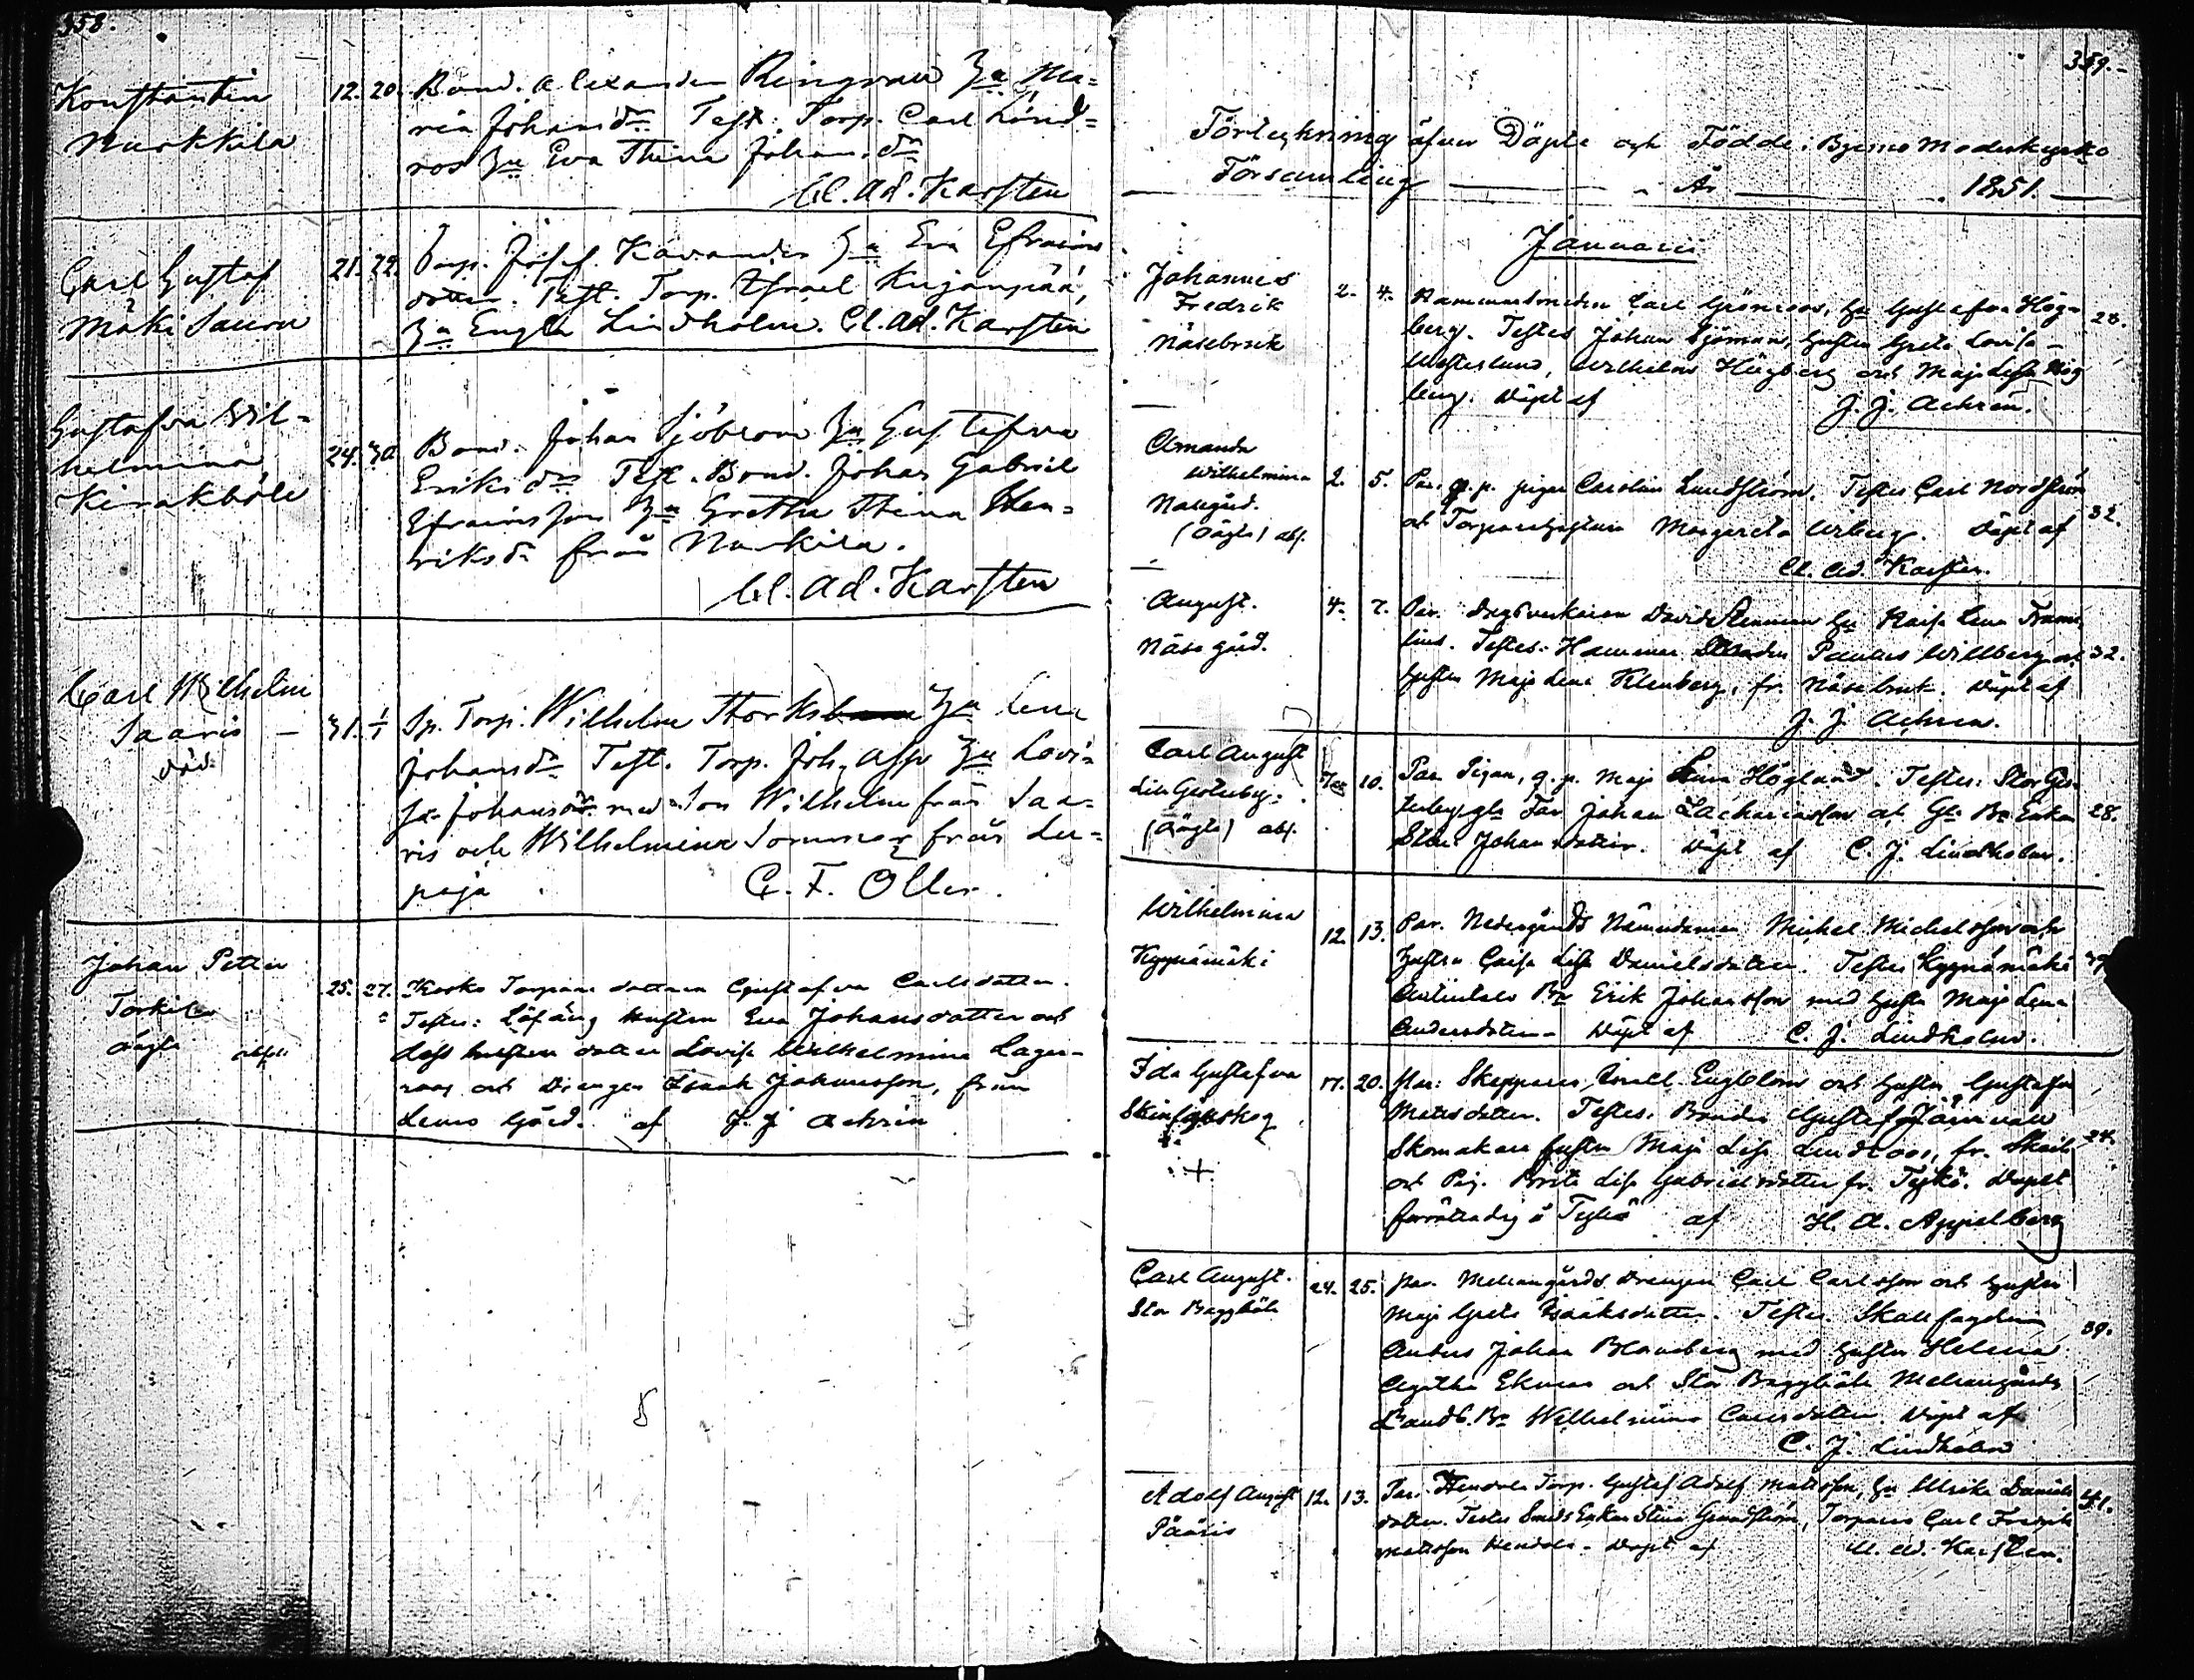 358.
Konstantin
Nurkkila
12. 20.
Bond. Alexander Ringvall Hu Ma=
ria Johansdr Test: Torp. Carl Lind=
ros Hu Eva Stina Johansdr
Cl. Ad. Karsten
Carl Gustaf
Mäki Sauru
21. 22.
Torp. Josef Kavander Hu Eva Efraims
dotter. Test. Torp. Israel Kujanpää,
Hu Engla Lindholm. Cl. Ad. Karsten
Gustafva Wil=
helmina
Kirakböle
24. 30.
Bond. Johan Sjöblom Hu Gustafva
Eriksdr Test. Bond. Johan Gabriel
Efraimsson Hu Gretha Stina Hen=
riksdr från Nurkila.
Cl. Ad. Karsten
Carl Wilhelm
Saaris
död
31. 1/1
Sp. Torp. Wilhelm Storks Hu Lena
Johansdr Test. Torp. Joh. Asp Hu Lovi=
sa Johansdr med son Wilhelm från Saa=
ris och Wilhelmina Sommar från Lu=
paja
C. F. Oller.
Johan Petter
Torkila
oägta
25. 27.
Kosko Torpare dottern Gustafva Carlsdotter.
Testes: Löfäng hustrun Eva Johansdotter och
dess hustrus dotter Lovisa Wilhelmina Lager-
roos och Drengen Isaak Johansson, från
Lemo Gård. af J. J. Achrén
359.-
Förteckning öfver Döpte och Födde i Bjerno Moderkyrko
Församling År 1851.
Januarii
Johannes
Fredrik
Näsebruk
2. 4.
Hammarsmeden Carl Grönroos, Hu Gustafva Hög-
berg. Testes Johan Sjöman, hustru Greta Lovisa
Westerlund, Wilhelm Högberg och Maja Lisa Hög
berg. Döpt af
J. J. Achrén.
28.
Amanda
Wilhelmina
Näsegård.
(Oägta)
2. 5.
Par. q. p. pigan Carolina Lundström. Testes Carl Nordström
och Torparehustrun Margareta Urberg. Döpt af
Cl. Ad. Karsten.
32.
August.
Näse gård.
4. 7.
Par. Dagsverkaren David Stenman Hu Kaisa Lena Fram
lins. Testes: Hammar Smeden Paulus Willberg och
hustru Maja Lena Klenberg, fr. Näse bruk. Döpt af
J. J. Achren.
32.
Carl August
Lill Gesterby.
(Oägta)
10.
Par. Pigan, q. p. Maja Stina Höglund. Testes: Stor Ges-
terby gls Far Johan Zachariasson och Gls Br Enkan
Stina Johansdotter. Döpt af C. J. Lindholm.
28.
Wilhelmina
Kypnämäki
12. 13.
Par. Nedergårds Nämndeman Michel Michelsson och
hustru Caisa Lisa Danielsdotter. Testes Kypnämäki
Br Erik Johansson med hustru Maja Lena
Andersdotter. Döpt af C. J. Lindholm.
Ida Gustafva
17. 20.
Par: Skepparen Israel Engblom och hustru Gustafva
Matsdotter. Testes. Bonden Gustaf Järnvall
Skomakare hustru Maja Lisa Lindroos, fr.
och Pig. Brita Lisa Gabrielsdotter fr. Tykö. Döpt
å Tykö af H. A. Appelberg
24.
Carl August.
Stor Baggböle
24. 25.
Par. Mellangårds Drengen Carl Carlsson och hustru
Maja Greta Isaaksdotter. Testes. Skallfogden
Anders Johan Blomberg med hustru Helena
Agatha Ekman och Stor Baggböle Mellangårds
Landb. Br Wilhelmina Carlsdotter. Döpt af
C. J. Lindholm
39.
Adolf August
Pääris
12. 13.
Par. Hendola Torp. Gustaf Adolf Matsson, Hu Ulrika Daniels
dotter. Testes Smeds Enkan Stina Grundström, Torparen Carl Fredrik
Matsson Hendola. Döpt af Cl. Ad. Karsten.
41.